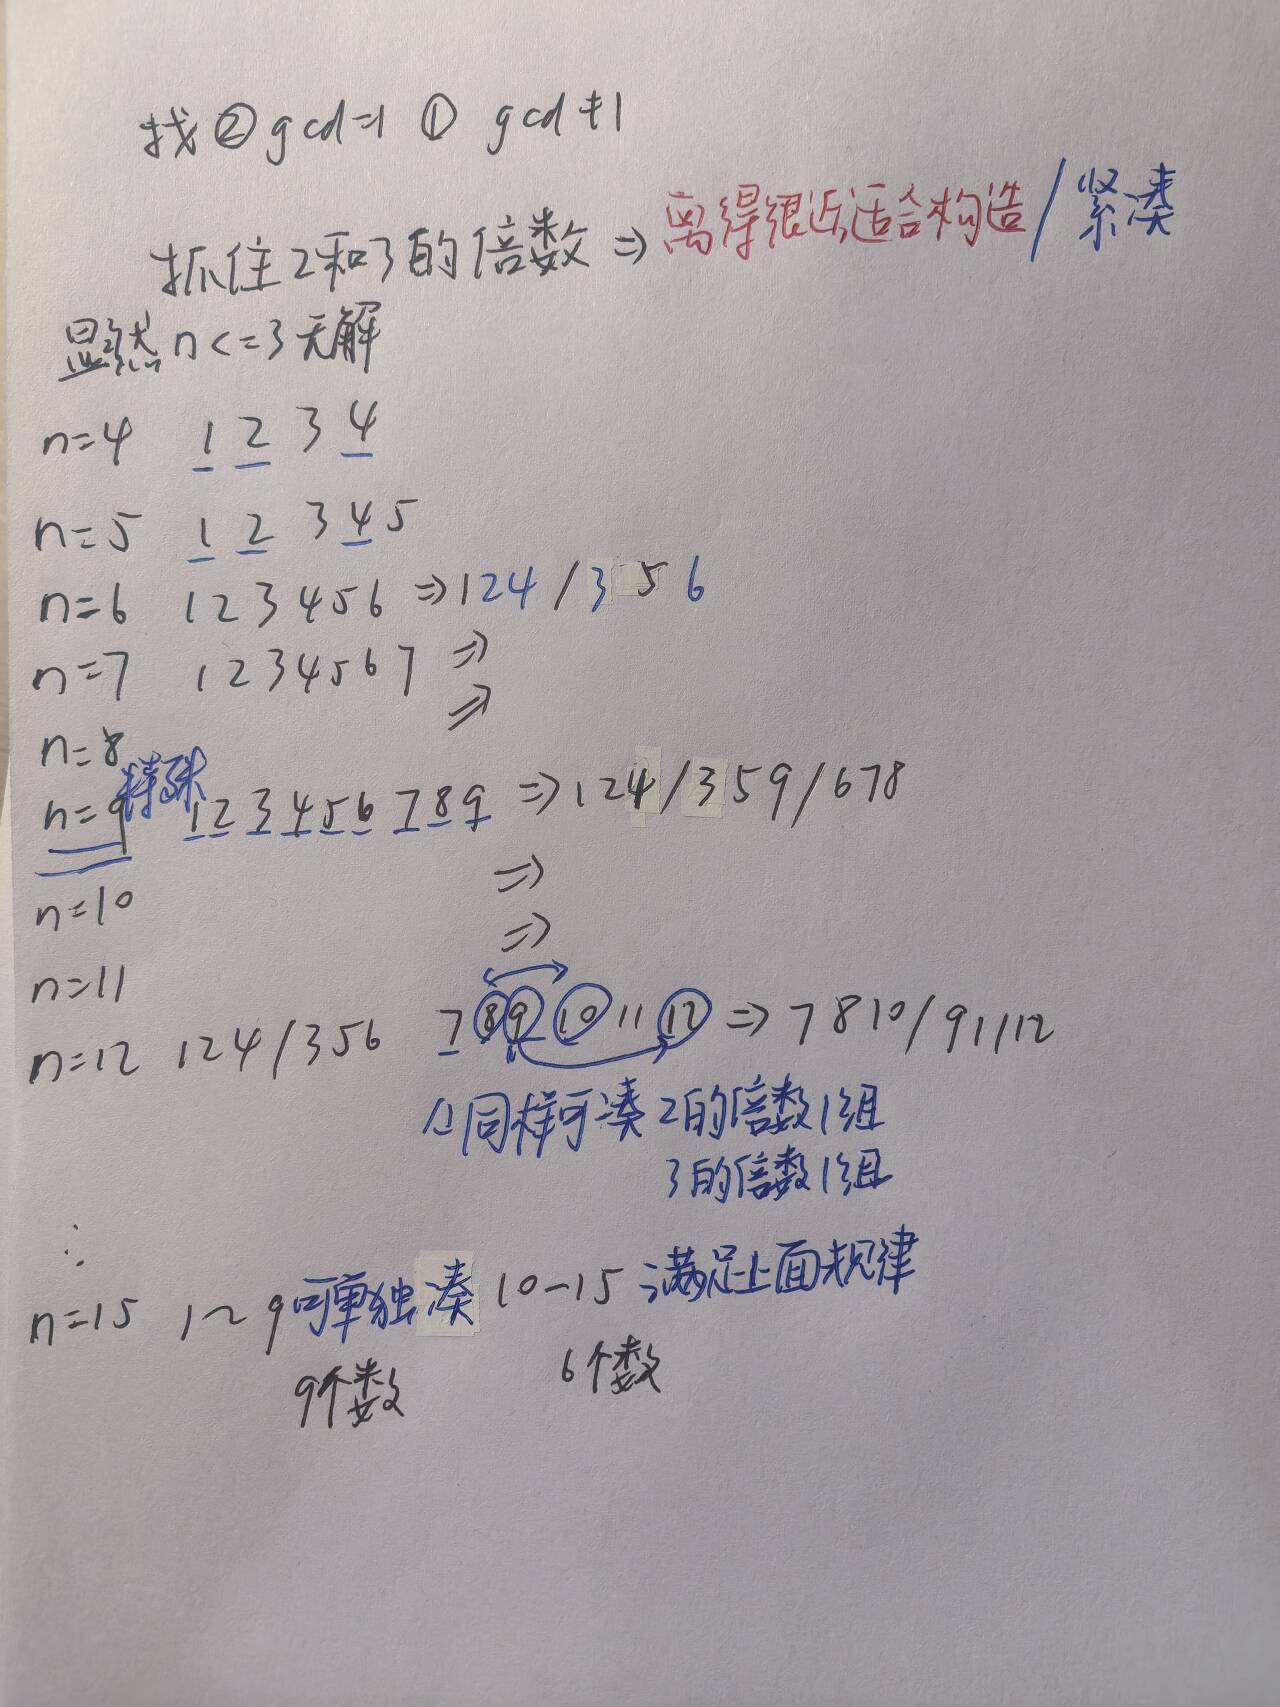 找②gcd=1 ① gcd≠1
抓住2和3的倍数⇒离得很近适合构造/紧凑
显然 n<=3无解
n=4 1 2 3 4
n=5 1 2 3 4 5
n=6 1 2 3 4 5 6 ⇒124/3 5 6
n=7 1 2 3 4 5 6 7 ⇒
n=8 ⇒
特殊
n=9 1 2 3 4 5 6 7 8 9 ⇒124/359/678
n=10 ⇒
n=11 ⇒
n=12 124/356 7 8 9 10 11 12 ⇒7 8 10/9 11 12
同样可凑2的倍数1组
3的倍数1组
n=15 1~9可单独凑 10-15 满足上面规律
9个数 6个数